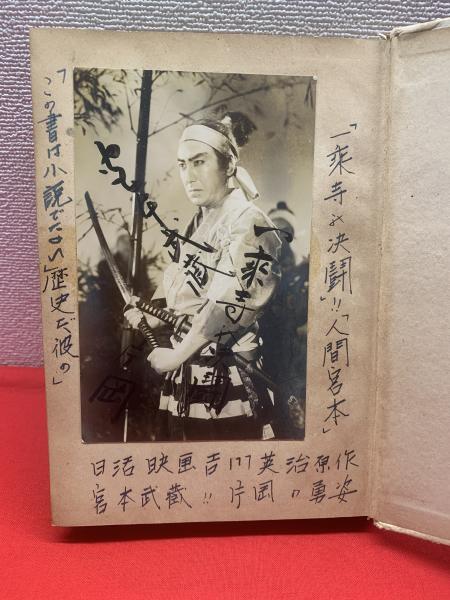 「一乗寺の決闘」!!「人間宮本」
一乗寺の決闘
武蔵
岡
「この書は小説でない歴史だ彼の」
日活映画吉川英治原作
宮本武蔵!!片岡の勇姿